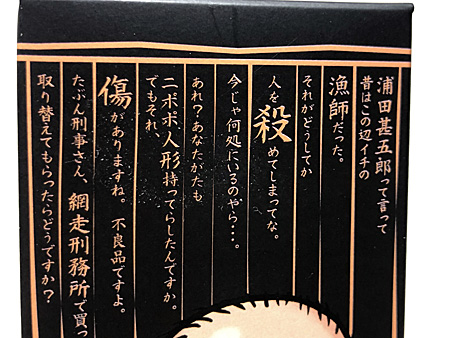 浦田甚五郎って言って
昔はこの辺イチの
漁師だった。
それがどうしてか
人を殺めてしまってな。
今じゃ何処にいるのやら･･･。
あれ？あなたがたも
ニポポ人形持ってらしたんですか。
でもそれ、
傷がありますね。不良品ですよ。
たぶん刑事さん、網走刑務所で買っ
取り替えてもらったらどうですか？